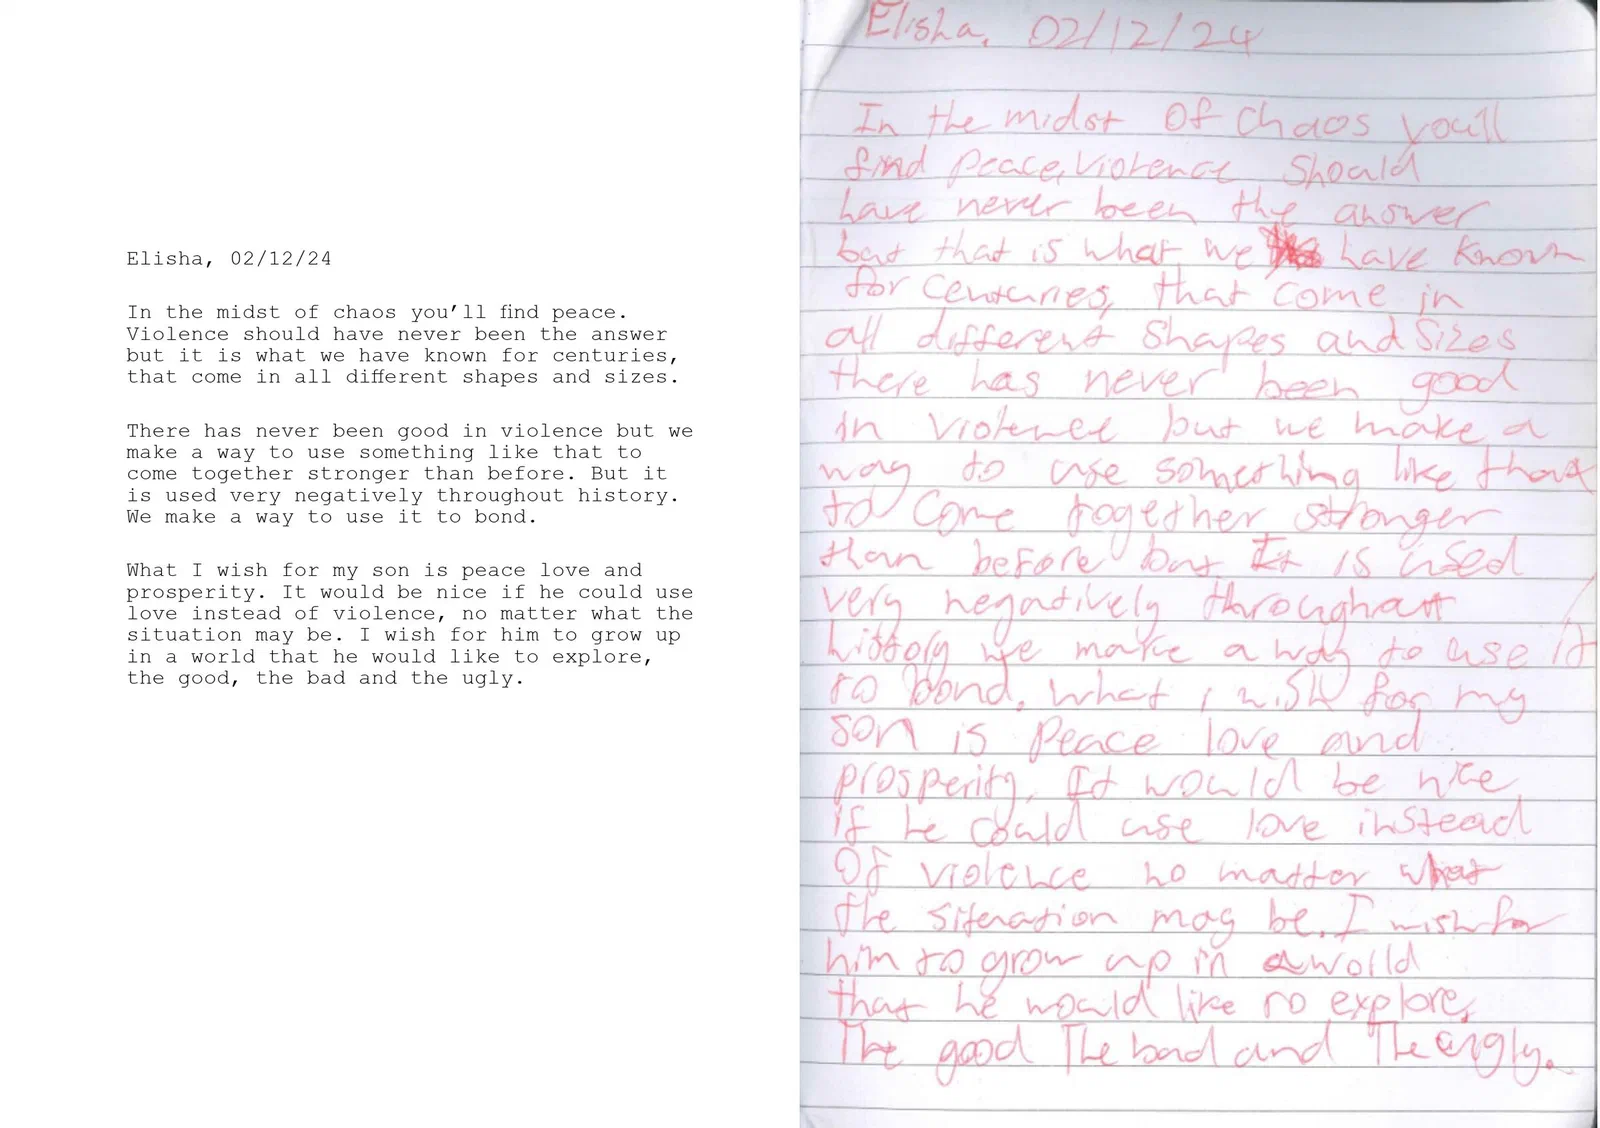 Elisha, 02/12/24
In the midst of chaos you’ll find peace.
Violence should have never been the answer
but it is what we have known for centuries,
that come in all different shapes and sizes.
There has never been good in violence but we
make a way to use something like that to
come together stronger than before. But it
is used very negatively throughout history.
We make a way to use it to bond.
What I wish for my son is peace love and
prosperity. It would be nice if he could use
love instead of violence, no matter what the
situation may be. I wish for him to grow up
in a world that he would like to explore,
the good, the bad and the ugly.
Elisha, 02/12/24
In the midst Of Chaos you'll
find peace, Violence Should
have never been the answer
but that is what we have Known
for Centuries, that come in
all different Shapes and Sizes
there has never been good
in violence but we make a
way to use something like that
to Come together stronger
than before but It is used
very negatively throughout
history we make a way to use it
to bond. What i wish for my
son is peace love and
prosperity. It would be nice
if he could use love instead
Of violence no matter what
the siteration may be. I wish for
him to grow up in a world
that he would like to explore,
The good The bad and The ugly.